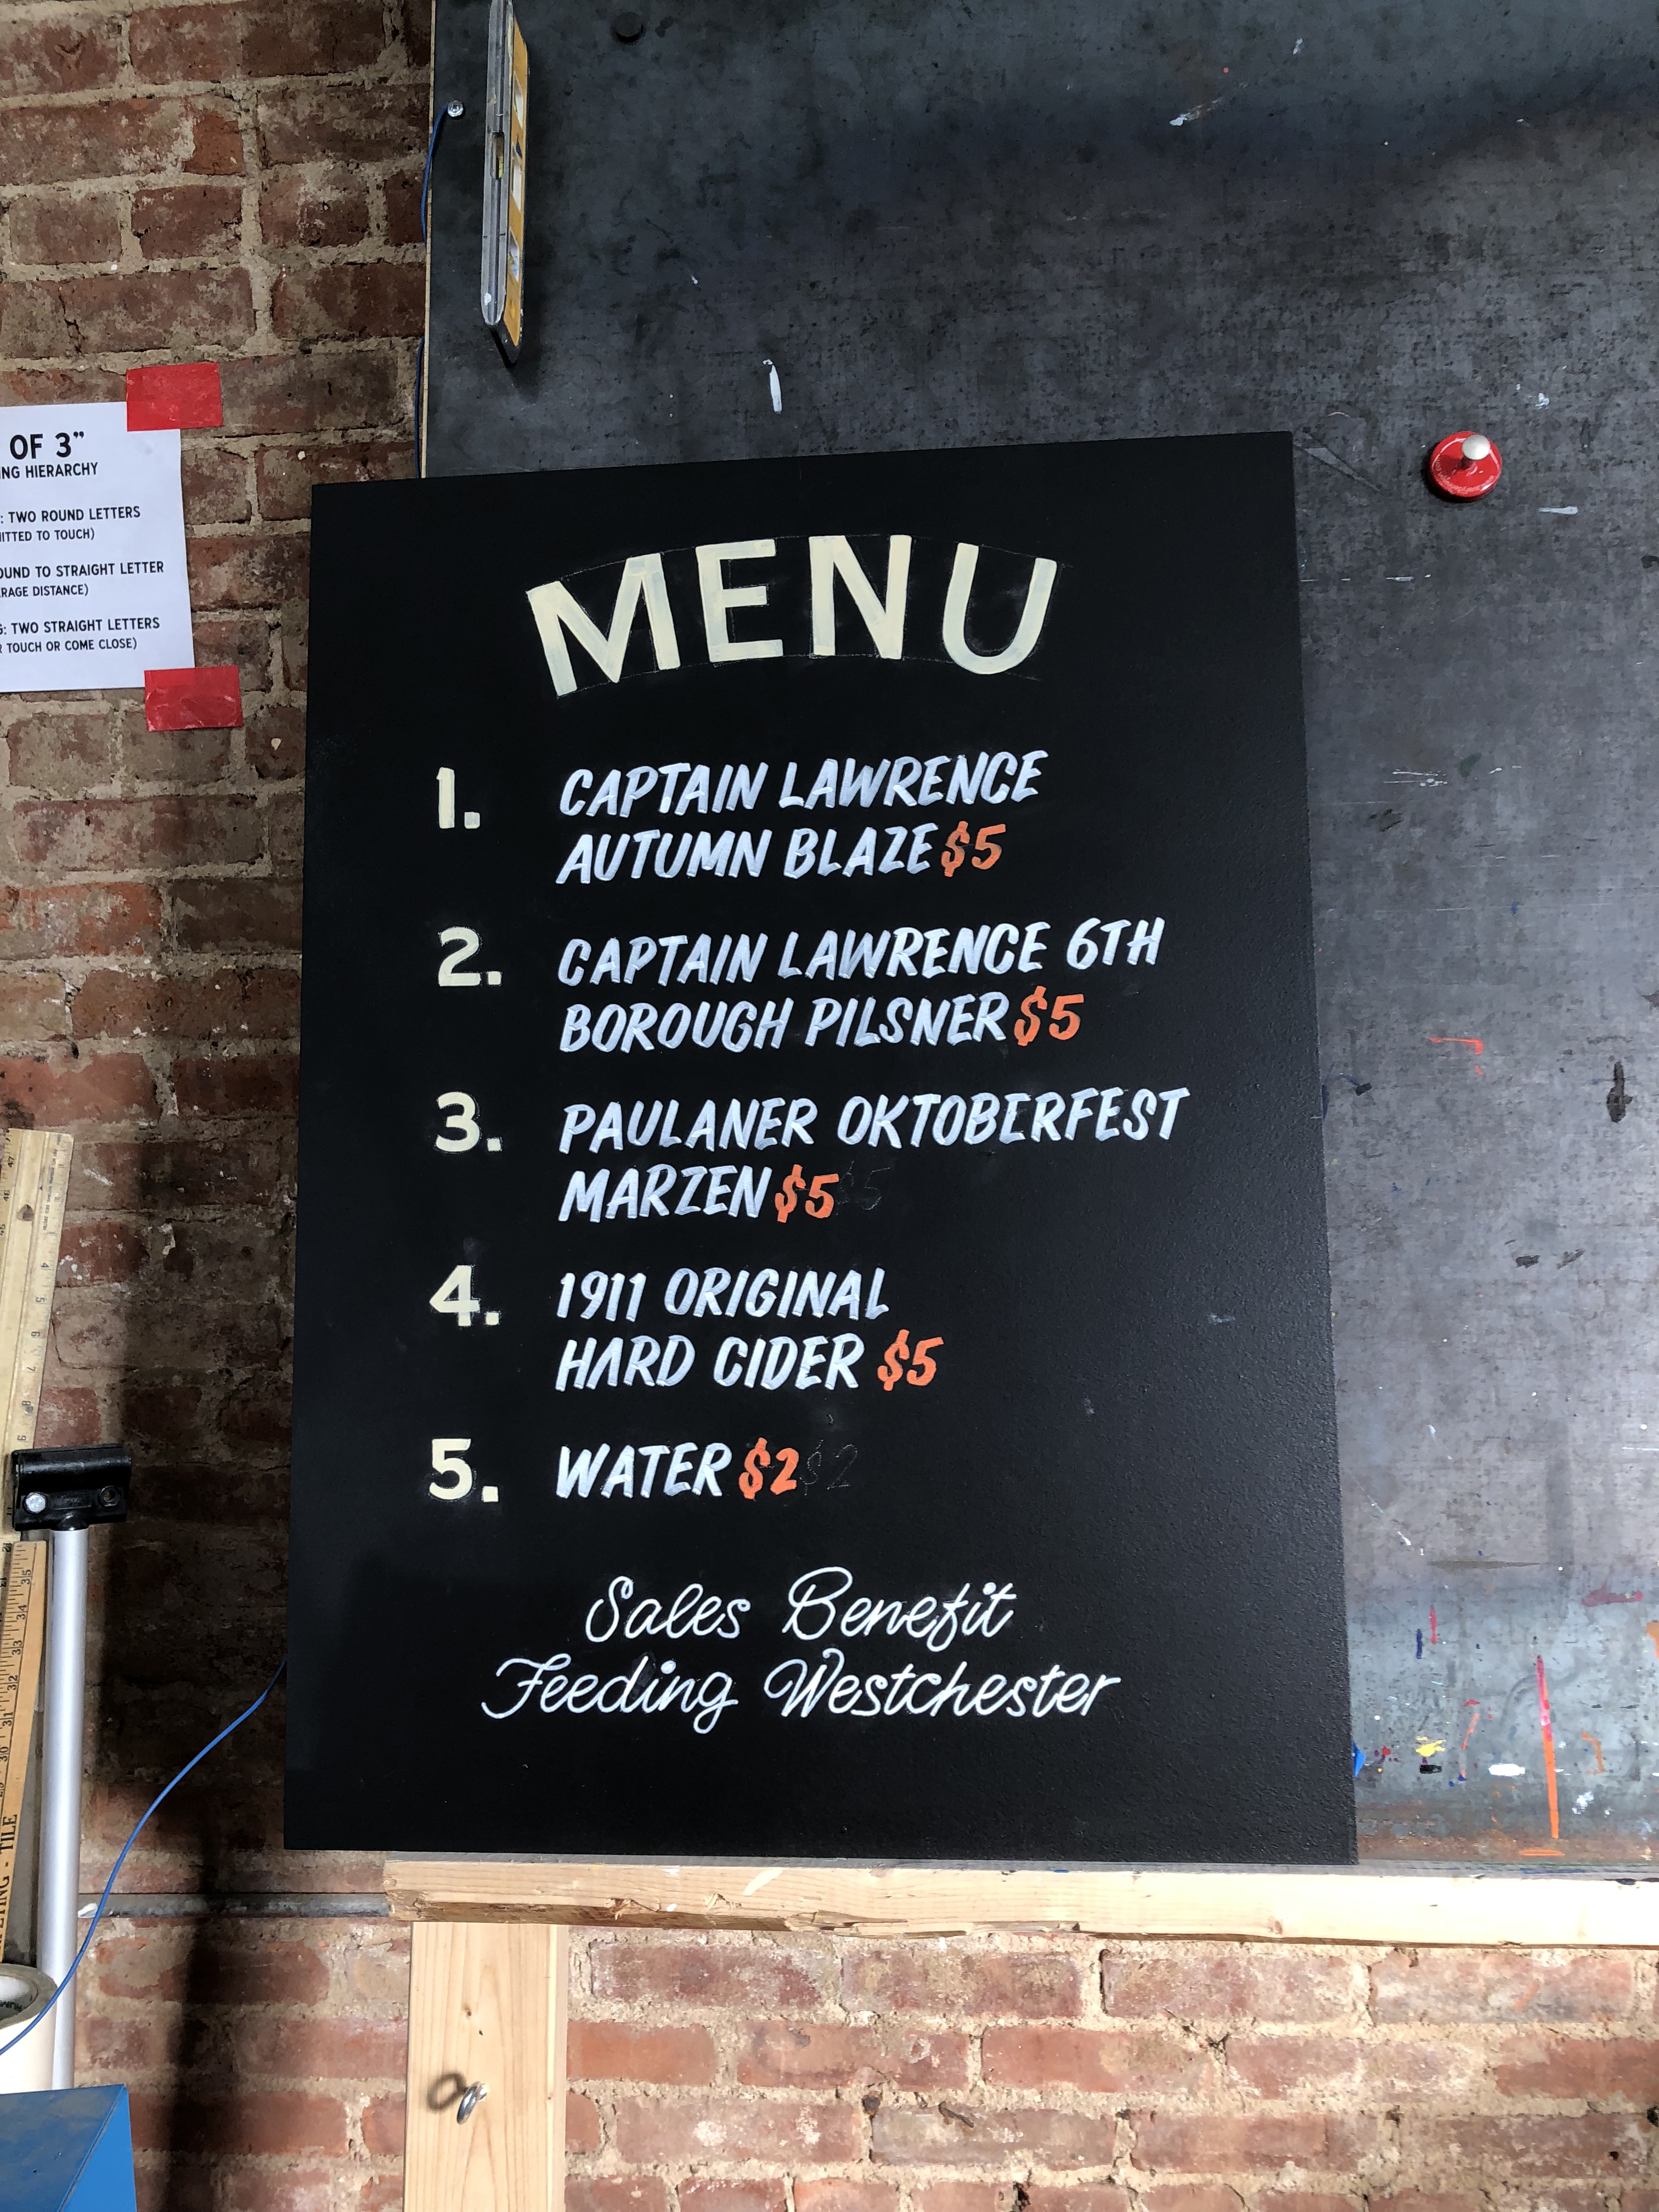 OF 3"
NG HIERARCHY
: TWO ROUND LETTERS
ITTED TO TOUCH)
OUND TO STRAIGHT LETTER
RAGE DISTANCE)
G: TWO STRAIGHT LETTERS
R TOUCH OR COME CLOSE)
MENU
1. CAPTAIN LAWRENCE
AUTUMN BLAZE $5
2. CAPTAIN LAWRENCE 6TH
BOROUGH PILSNER $5
3. PAULANER OKTOBERFEST
MARZEN $5
4. 1911 ORIGINAL
HARD CIDER $5
5. WATER $2
Sales Benefit
Feeding Westchester